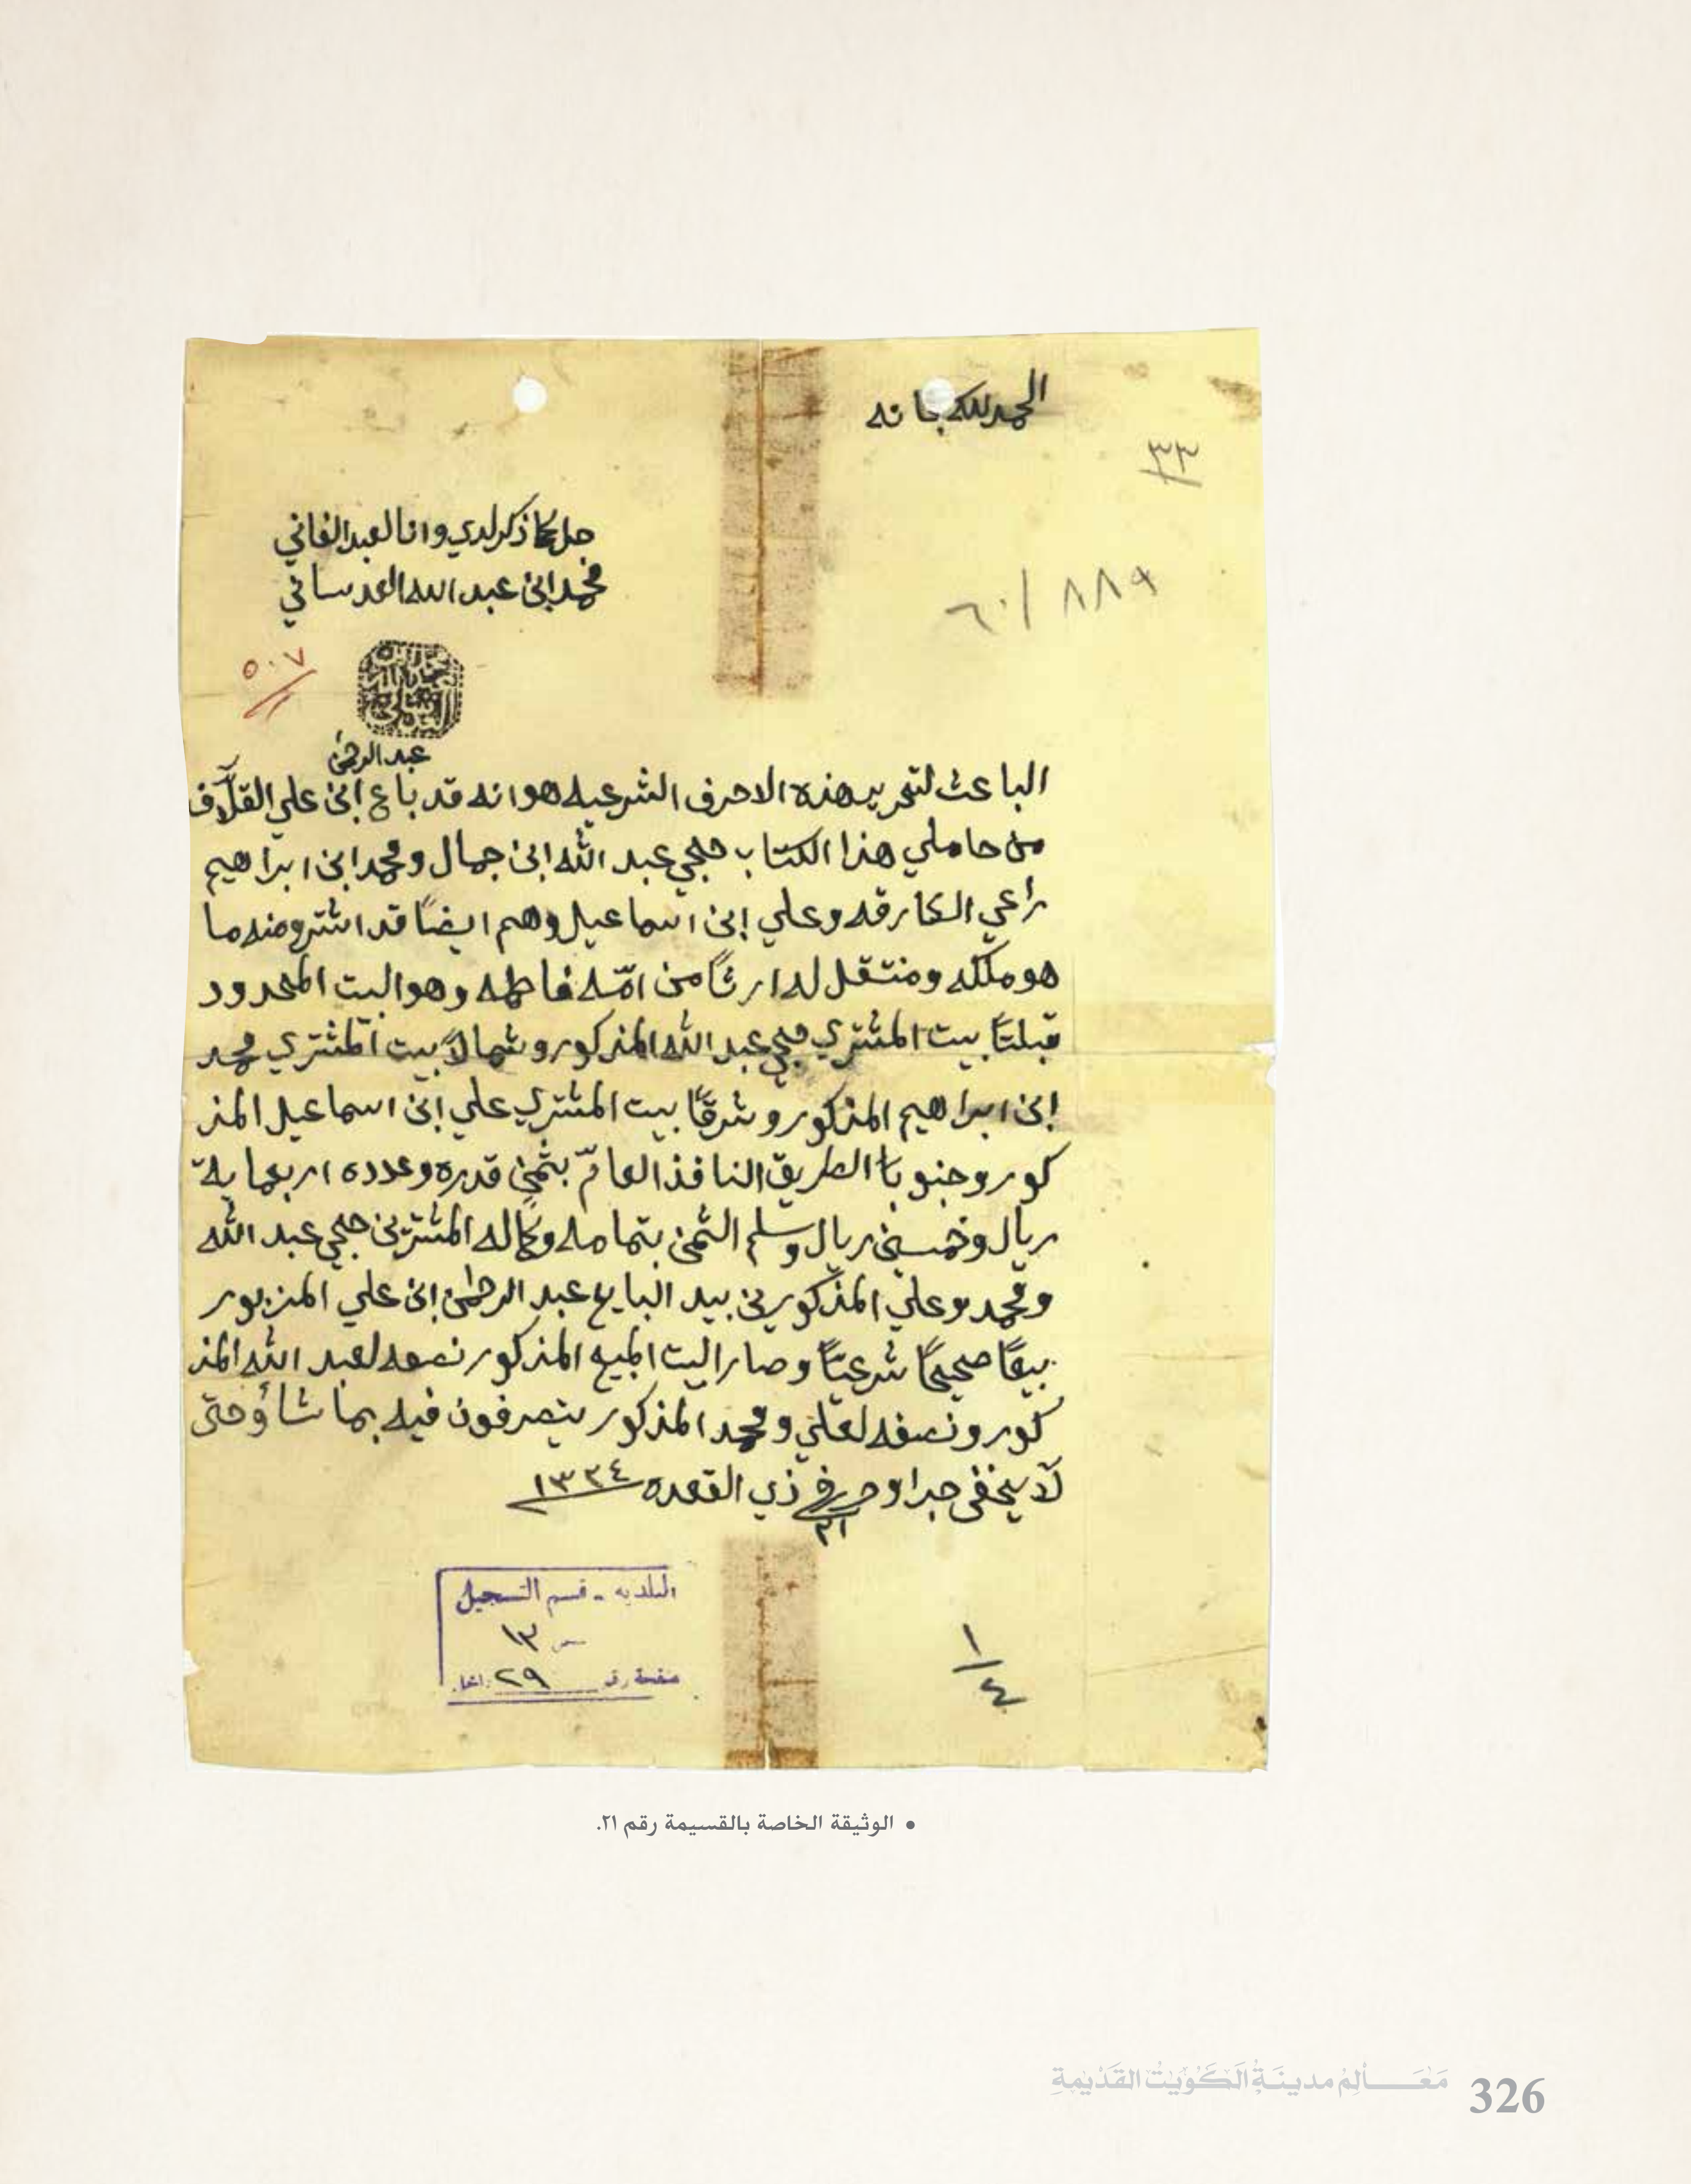 الحمد لله سبحانه
٣٣
جرا ما ذكر لدي وانا العبد الفاني
محمد ابن عبد الله العدساني
٨٨٩ / ٦٠
٥٠٧
عبد الرحمن
الباعث لتحرير هذه الاحرف الشرعيه هو انه قد باع ابن علي القلاف
من حاملي هذا الكتاب حجي عبد الله ابن جمال ومحمد ابن ابراهيم
راعي الكارقه وعلي ابن اسماعيل وهم ايضًا قد اشترو منه ما
هو ملكه ومنتقل له ارثًا من امّه فاطمه وهو البيت المحدود
قبلتًا بيت المشتري حجي عبد الله المذكور وشمالاً بيت المشتري محمد
ابن ابراهيم المذكور وشرقًا بيت المشتري علي ابن اسماعيل المذ
كور وجنوبًا الطريق النافذ العامّ بثمن قدره وعدده اربعماية
ريال وخمسين ريال وسلم الثمن بتمامه وكماله المشترين حجي عبد الله
ومحمد وعلي المذكورين بيد البايع عبد الرحمن ابن علي المزبور
بيعًا صحيحًا شرعيًا وصار البيت المبيع المذكور نصفه لعبد الله المذ
كور ونصفه لعلي ومحمد المذكور يتصرفون فيه بما شاؤ حتى
لا يخفى جرا وحرر في ٢١ ذي القعده ١٣٣٤
البلديه - قسم التسجيل
١٣
صفحة رقم ٢٩
١/٤
• الوثيقة الخاصة بالقسيمة رقم ٢١.
مَعَالِمُ مدينَةِ الكُوَيْتِ القَدْيمَةِ 326